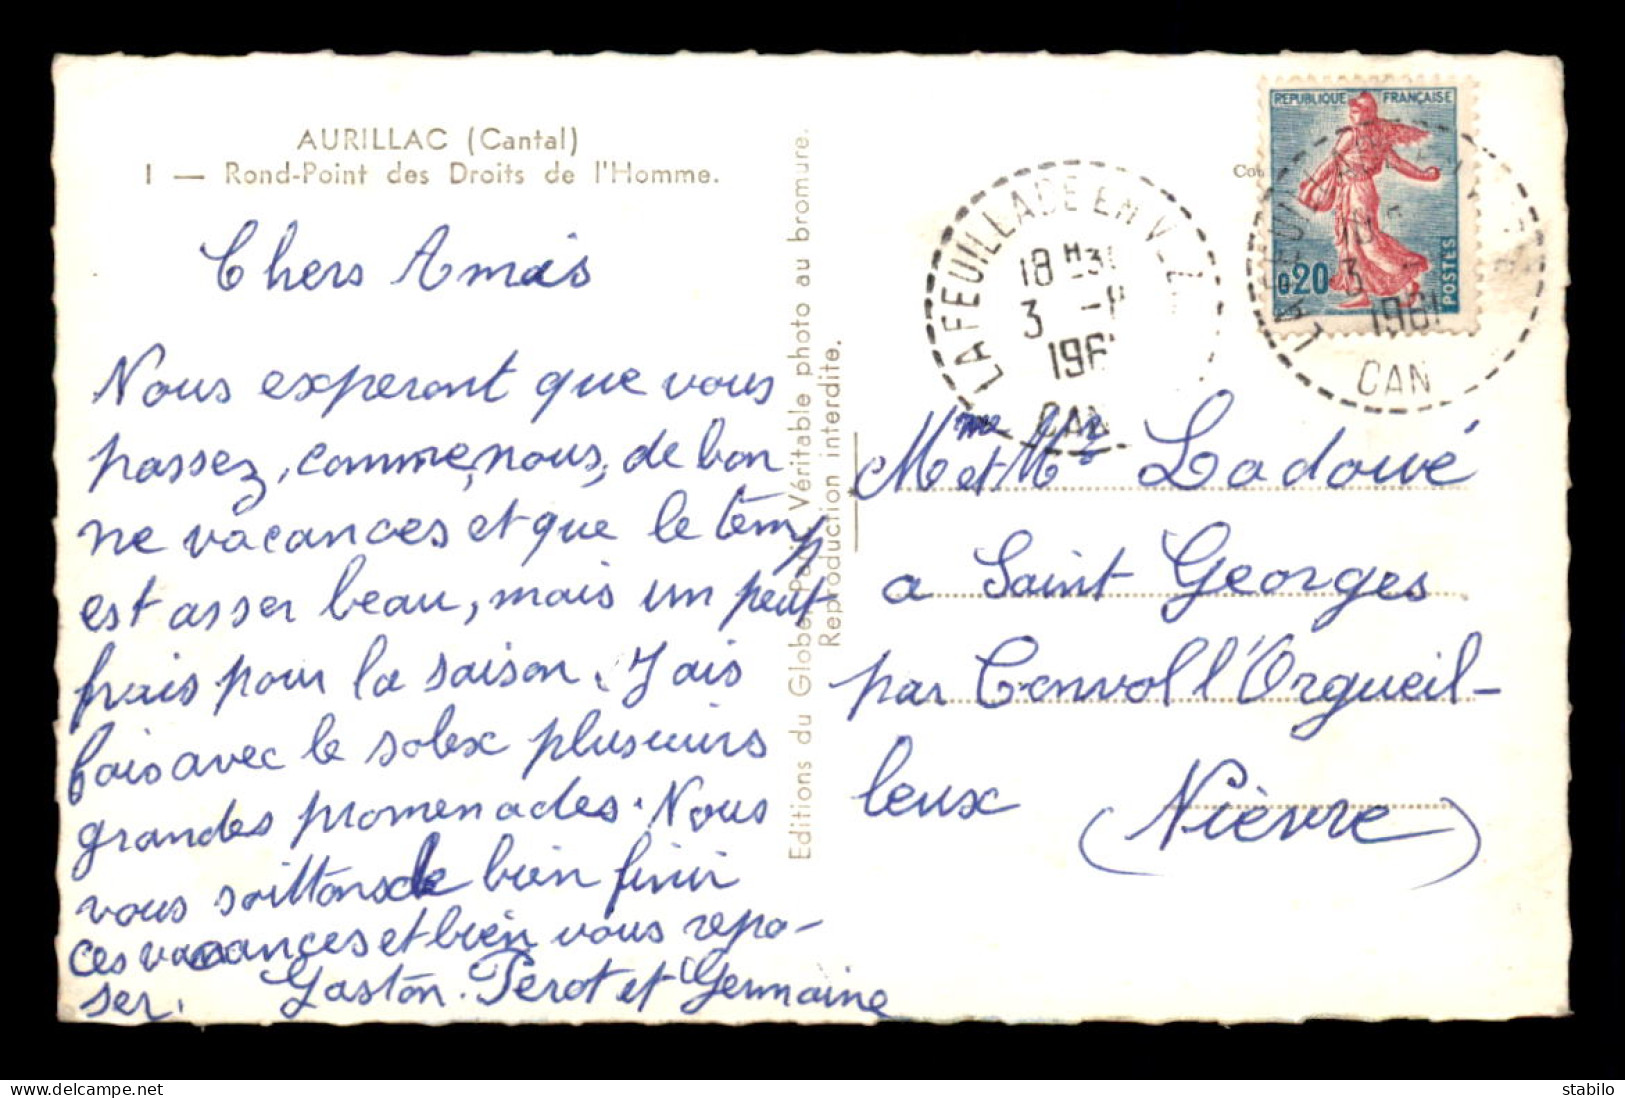 AURILLAC (Cantal)
I — Rond-Point des Droits de l'Homme.
Chers Amis
Nous experont que vous
passez, comme, nous, de bon
ne vacances et que le temp
est asser beau, mais um peut
frais pour la saison. J'ais
fais avec le solex plusieurs
grandes promenades. Nous
vous soittons de bien finir
ces vacances et bien vous repo-
ser. Gaston. Perot et Germaine
Editions du Globe, Paris. Véritable photo au bromure.
Reproduction interdite.
LAFEUILLADE EN V-Z
18 H 30
3 -8
1961
CAN
REPUBLIQUE FRANÇAISE
0,20
POSTES
LAFEUILLADE EN
18
3 -
1961
CAN
Mme et Mr Ladoué
a Saint Georges
par Corvol l'Orgueil-
leux
(Nièvre)
stabilo
delcampe.net